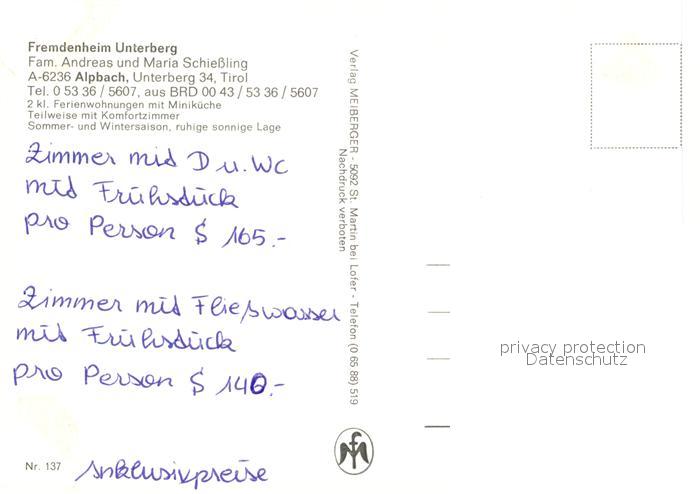 Fremdenheim Unterberg
Fam. Andreas und Maria Schießling
A-6236 Alpbach, Unterberg 34, Tirol
Tel. 0 53 36 / 5607, aus BRD 00 43 / 53 36 / 5607
2 kl. Ferienwohnungen mit Miniküche
Teilweise mit Komfortzimmer
Sommer- und Wintersaison, ruhige sonnige Lage
Zimmer mid D u. WC
mid Frühsdück
pro Person S 165.-
Zimmer mid Fließwasser
mid Frühsdück
pro Person S 140.-
Nr. 137
Inklusivpreise
Verlag MEIBERGER - 5092 St. Martin bei Lofer - Telefon (0 65 88) 519
Nachdruck verboten
privacy protection
Datenschutz